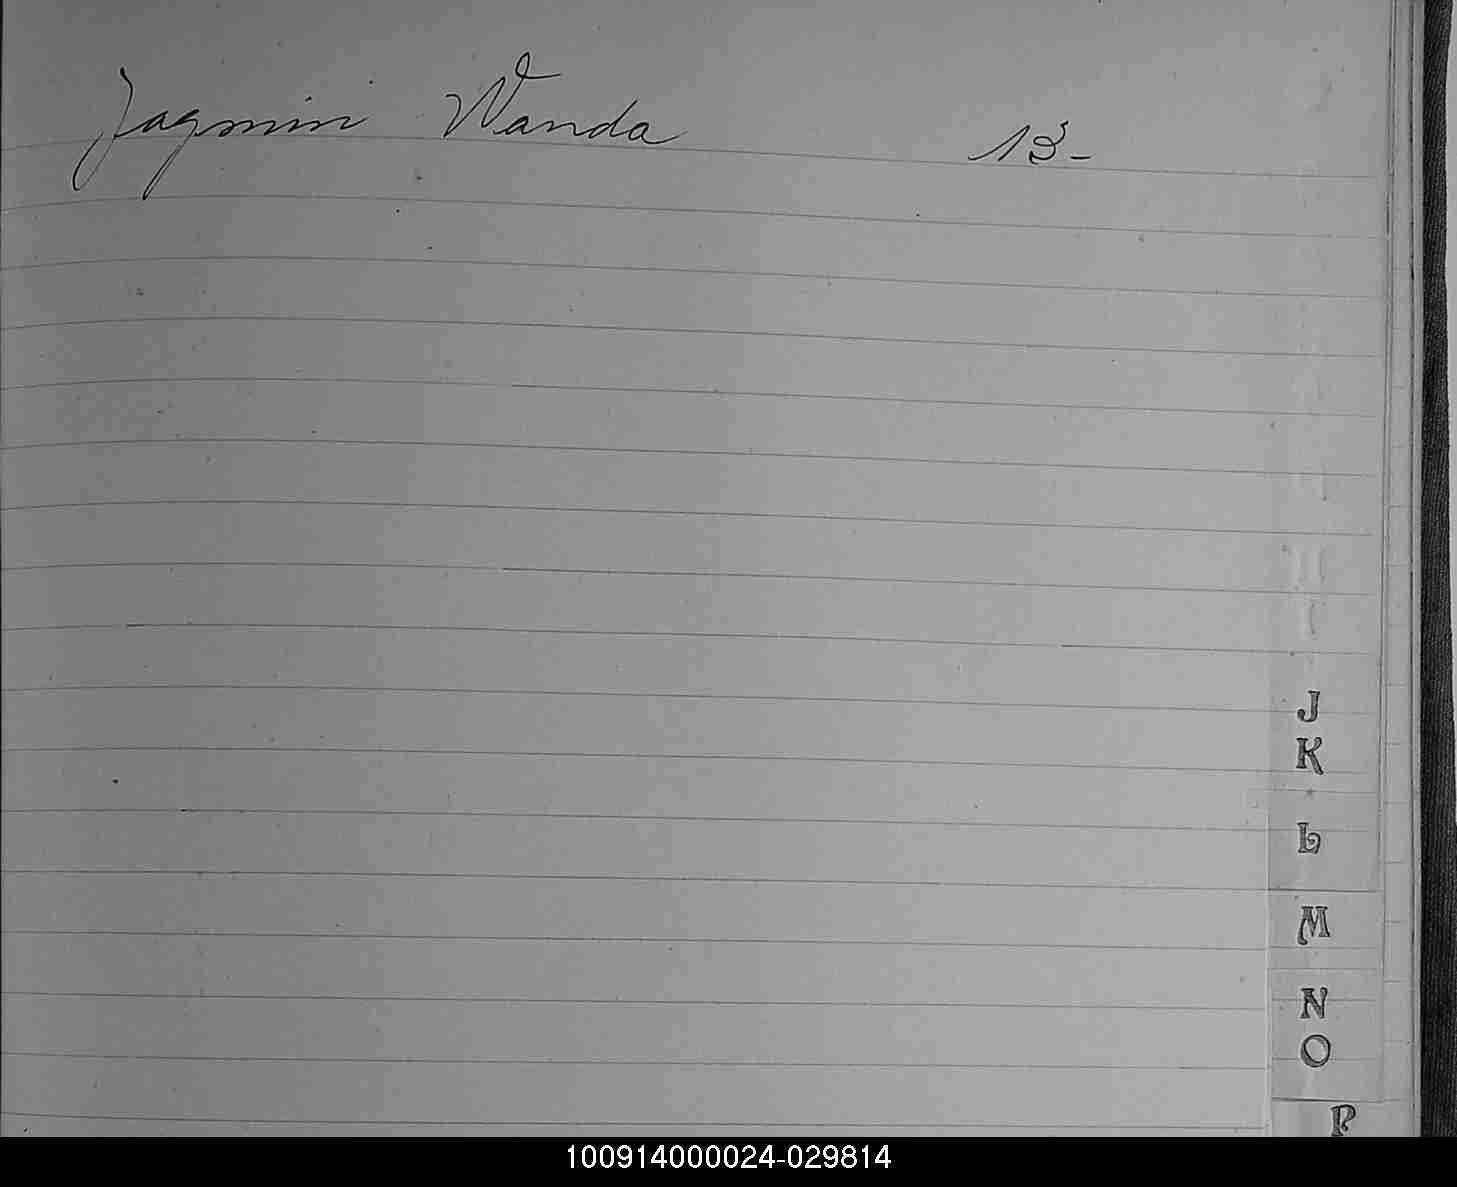 Jagmin Wanda 13-
J
K
L
M
N
O
P
100914000024-029814